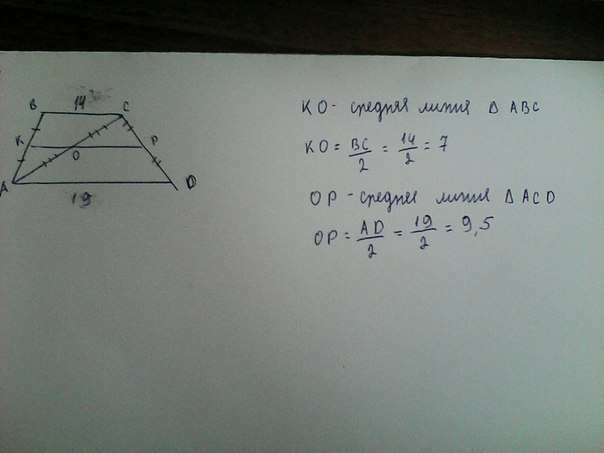 B 14 C
K P
O
A D
19
KO - средняя линия Δ ABC
KO = BC/2 = 14/2 = 7
OP - средняя линия Δ ACD
OP = AD/2 = 19/2 = 9,5